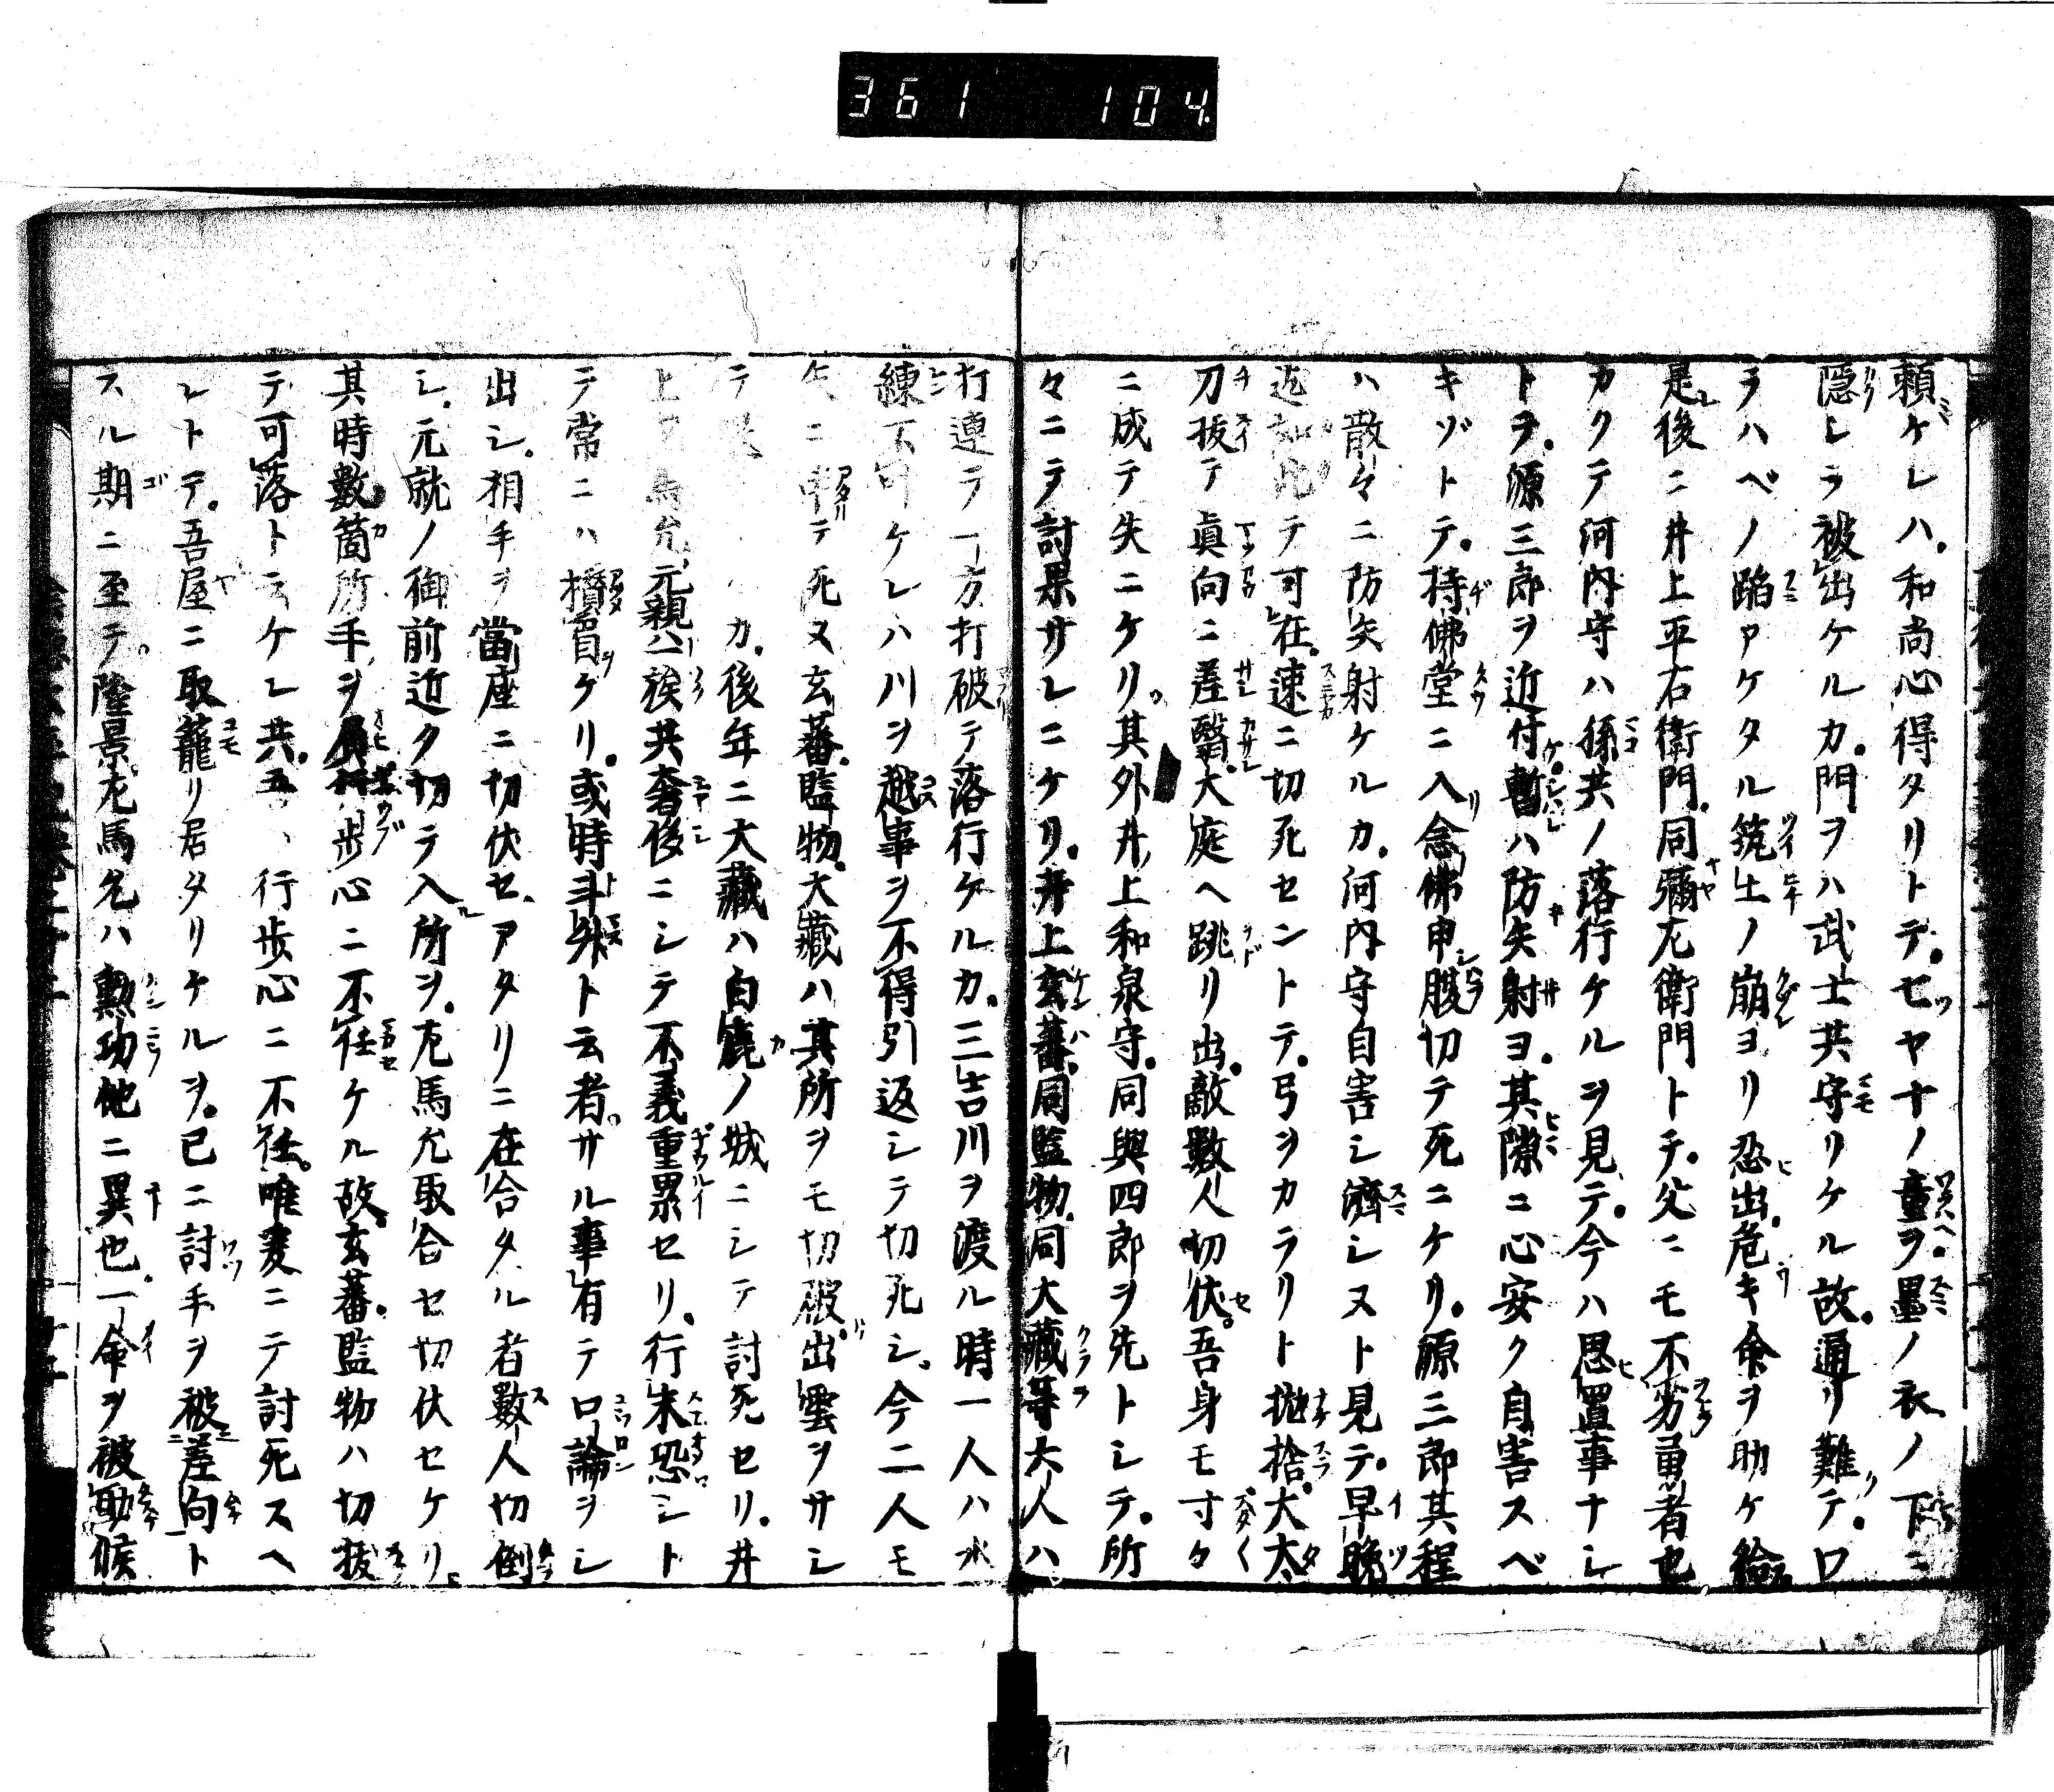 361 104.
頼ケレハ。和尚心得タリトテ。セヤナノ童ヲ墨ノ衣ノ下ニ
隠レラ被出ケルカ。門ヲハ武士共守リケル故。通リ難テ。ワ
ヲハベノ蹈アケタル築土ノ崩ヨリ忍出。危キ命ヲ助ケ給。
是後ニ井上平右衛門。同彌左衛門トテ。父ニモ不劣勇者也
カクテ河内守ハ孫共ノ落行ケルヲ見テ。今ハ思置事ナシ
トヲ。源三郎ヲ近付暫ハ防矢射ヨ。其隙ニ心安ク自害スベ
キゾトテ。持佛堂ニ入念佛申腹切テ死ニケリ。源三郎其程
ハ散々ニ防矢射ケルカ。河内守自害シ濟シヌト見テ。早晩
迄如此テ可在。速ニ切死セントテ。弓ヲカラリト抛捨。大太
刀抜テ眞向ニ差翳。大庭ヘ跳リ出。敵數人切伏。吾身モ寸タ
ニ成テ失ニケリ。其外井上和泉守。同與四郎ヲ先トシテ。所
々ニテ討果サレニケリ。井上玄蕃。同監物。同大藏等大人ハ
打連テ一方打破テ落行ケルカ。三吉川ヲ渡ル時一人ハ水
練不叶ケレハ川ヲ越事ヲ不得引返シテ切死シ。今二人モ
矢ニ中テ死ヌ玄蕃。監物。大藏ハ其所ヲモ切破。出雲ヲサシ
テ カ。後年ニ大藏ハ白鹿ノ城ニシテ討死セリ。井
上 馬允元親ハ一族共奢後ニシテ不義重累セリ。行末恐シト
テ常ニハ擯賓ケリ。或時斗外ト云者。サル事有テ口論ヲシ
出シ。相手ヲ當座ニ切伏セ。アタリニ在合タル者數人切倒
シ。元就ノ御前近ク切テ入所ヲ。左馬允取合セ切伏セケリ。
其時數箇所手ヲ負 歩心ニ不任ケル故。玄蕃。監物ハ切抜
テ可落ト云ケレ共。吾ハ行歩心ニ不任。唯爰ニテ討死スヘ
シトテ。吾屋ニ取籠リ居タリケルヲ。已ニ討手ヲ被差向ト
スル期ニ至テ。隆景左馬允ハ勲功他ニ異也。一命ヲ被助候